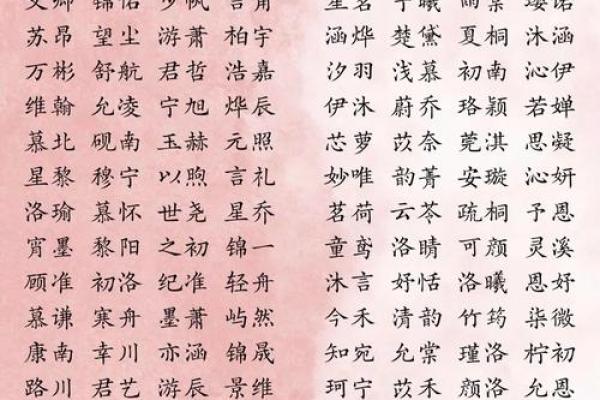 苏昂 望尘 游萧 柏宇 涵烨 楚黛 夏桐 沐涵
万彬 舒航 君哲 浩嘉 汐羽 浅慕 初南 沁伊
维翰 允凌 宁旭 烨辰 伊沐 蔚乔 珞颖 若婵
慕北 砚南 玉赫 元照 芯萝 苡奈 莞淇 思凝
星黎 穆宁 以煦 言礼 妙唯 韵菁 安璇 沁妍
洛瑜 慕怀 世尧 星乔 茗荷 云苓 疏桐 予恩
宵墨 黎阳 之初 锦一 童鸢 洛晴 可颜 灵溪
顾准 初洛 纪准 轻舟 沐言 好恬 洛曦 恩好
慕谦 寒舟 墨萧 屿然 今禾 清韵 竹筠 柒微
康南 幸川 亦涵 锦晟 知宛 允棠 瑾洛 柠初
路川 君艺 游辰 景维 珂宁 苡禾 颜洛 允恩